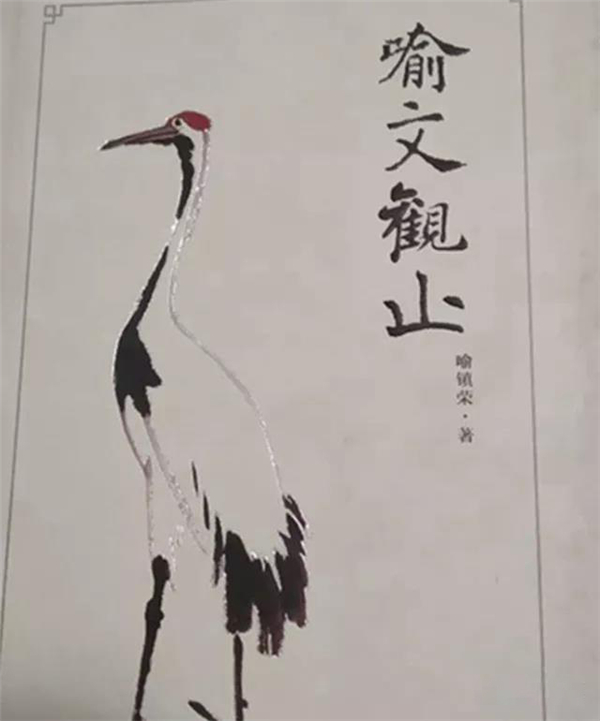 喻文觀止
喻镇荣·著